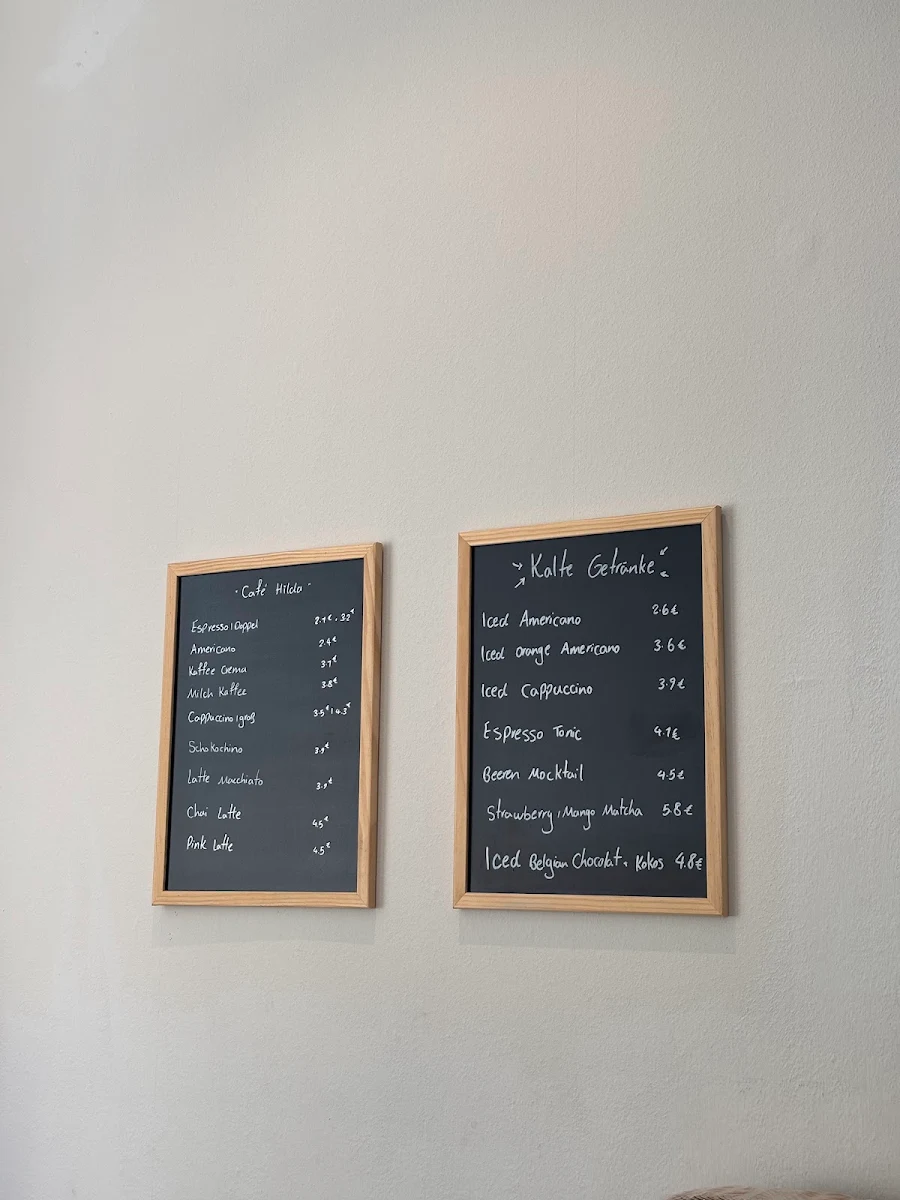 "Café Hilda"
Espresso | Doppel 2.1€ . 3.2€
Americano 2.4€
Kaffee Crema 3.1€
Milch Kaffee 3.8€
Cappuccino | groß 3.5€ | 4.3€
Schokochino 3.9€
Latte Macchiato 3.9€
Chai Latte 4.5€
Pink Latte 4.5€
Kalte Getränke
Iced Americano 2.6€
Iced Orange Americano 3.6€
Iced Cappuccino 3.9€
Espresso Tonic 4.1€
Beeren Mocktail 4.5€
Strawberry, Mango Matcha 5.8€
Iced Belgian Chocolat, Kokos 4.8€